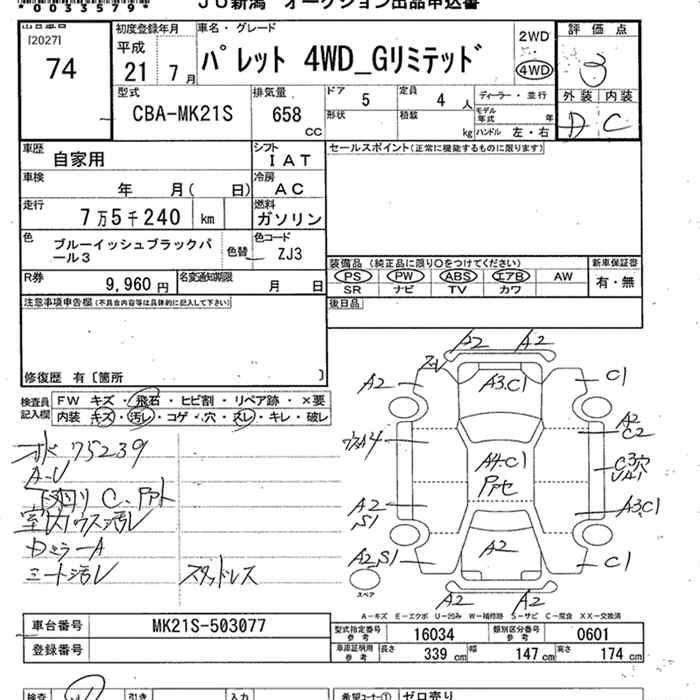 *0033579*
JU新潟 オークション出品申込書
[2027]
74
初度登録年月
平成
21 年 7 月
車名・グレード
パレット 4WD_Gリミテッド
2WD
4WD
評価点
3
外装 内装
D C
型式
CBA-MK21S
排気量
658
CC
ドア
5
定員
4 人
形状
積載
kg
ディーラー・並行
モデル年式 年
ハンドル 左・右
車歴
自家用
シフト
IAT
車検
年 月( 日)
冷房
AC
走行
7万5千240 km
燃料
ガソリン
色
ブルーイッシュブラックパール3
色替
色コード
ZJ3
R券
9,960 円
名変通知期限
月 日
セールスポイント(正常に機能するものに限ります)
装備品(純正品に限り○をつけてください)
PS PW ABS エアB AW
SR ナビ TV カワ
新車保証書
有・無
後日品
注意事項申告欄(不具合内容等は具体的に記入して下さい)
修復歴 有〔箇所 〕
検査員記入欄
FW キズ・飛石・ヒビ割・リペア跡・×要
内装 キズ・汚レ・コゲ・穴・スレ・キレ・破レ
75239
A-U
下回り C、
室内 汚レ
シート汚レ
スタッドレス
A2 A2
A2 A3.C1 C1
A2
C2
A4
A4.C1
C3穴
A2
S1
A3.C1
A2.S1 A2 C1
A2 A2
スペア
A－キズ E－エクボ U－凹み W－補修跡 S－サビ C－腐食 XX－交換済
車台番号
MK21S-503077
登録番号
型式指定番号 参考
16034
類別区分番号 参考
0601
車庫証明用 参考
長さ 339 cm
幅 147 cm
高さ 174 cm
検査
引き
入力
希望コーナー①
ゼロ売り